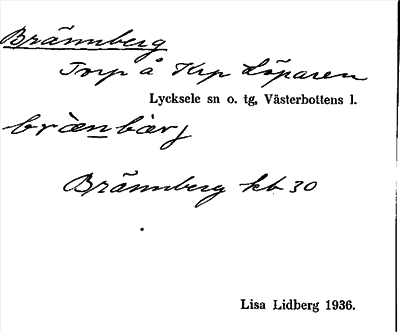 Brännberg
Torp å Krp Löparen
Lycksele sn o. tg, Västerbottens l.
brä̀nbàrj
Brännberg kb 30
Lisa Lidberg 1936.